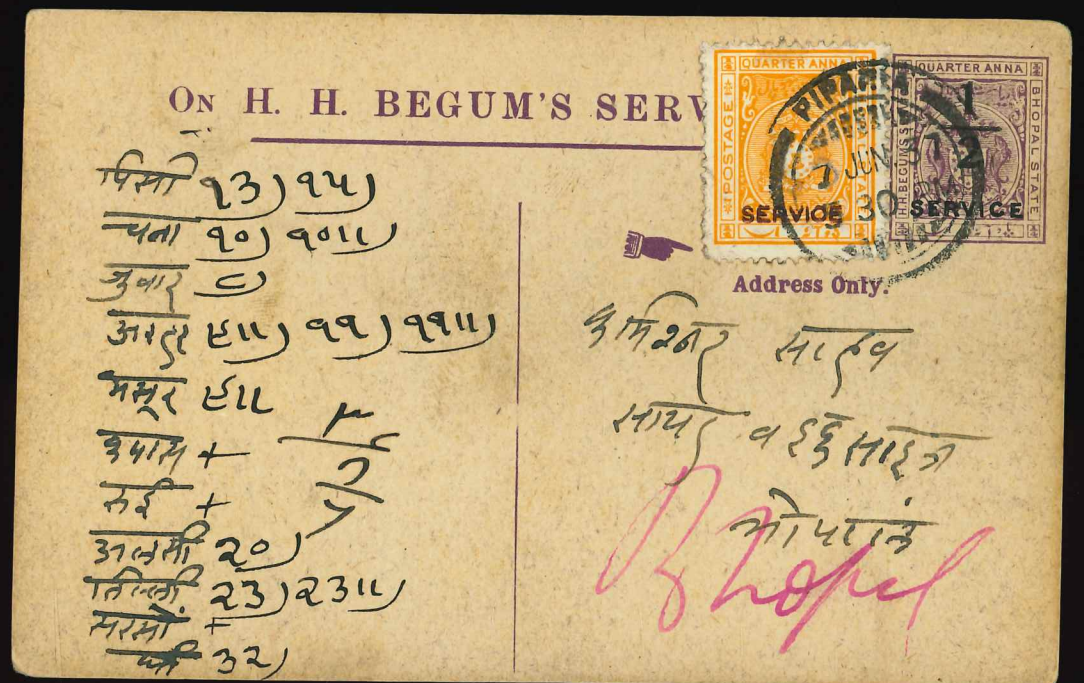 ON H. H. BEGUM'S SERV
QUARTER ANNA
POSTAGE
SERVICE
QUARTER ANNA
BHOPAL STATE
H.H. BEGUM'S S
SERVICE
PIPARIA
7 JUN. 37
5 30 PM
Address Only.
पिसी १३) १५)
चना १०) १०॥)
जुवार ८)
अरहर ९॥) ११) ११॥)
मसूर ९॥
कपास +
रुई +
अलसी २०)
तिल्ली २३) २३॥)
सरसों +
घी ३२)
कमिश्नर साहब
सायर व
भोपाल
Bhopal